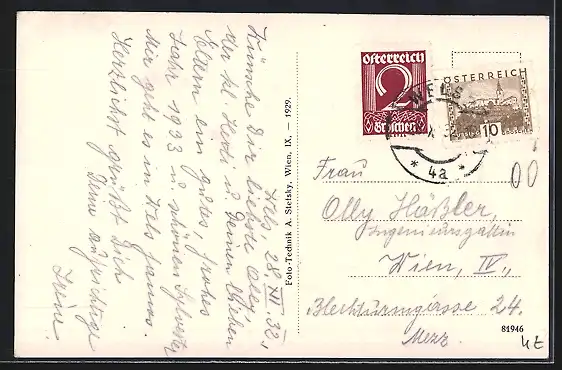 Wels, 28. XII. 32.
Wünsche Dir liebste Olly,
der kl. Herdi u. Deinen lieben
Eltern ein gutes, frohes
Jahr 1933 u. schönen Sylvester
Mir geht es in Wels ganz
Herzlichst grüßt Dich
Deine aufrichtige
Irene.
Foto-Technik A. Stefsky, Wien, IX. — 1929.
Österreich
2
Groschen
ÖSTERREICH
10
GROSCHEN
WELS
* 4a *
Frau
Olly Häßler,
Ingenieursgattin
Wien, IV.,
Blechturmgasse 24.
Mezz.
81946